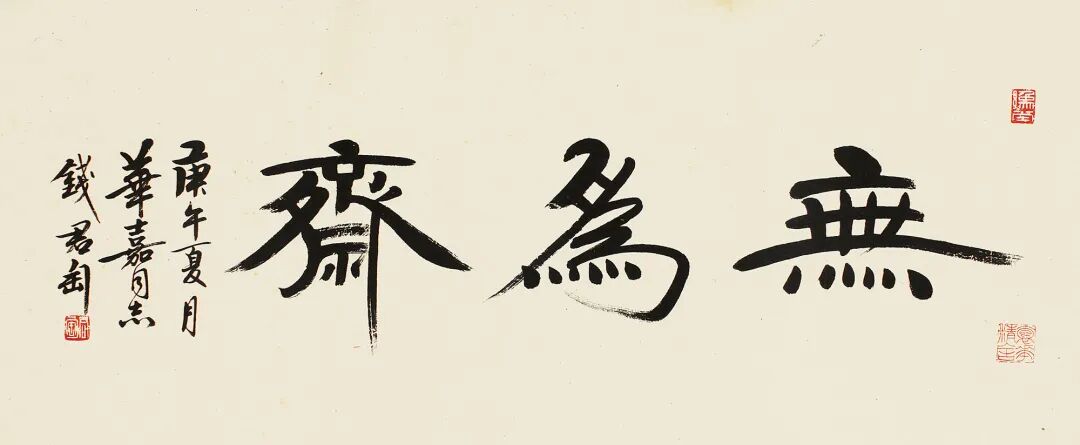 無爲齋
庚午夏月
華嘉同志
錢君匋